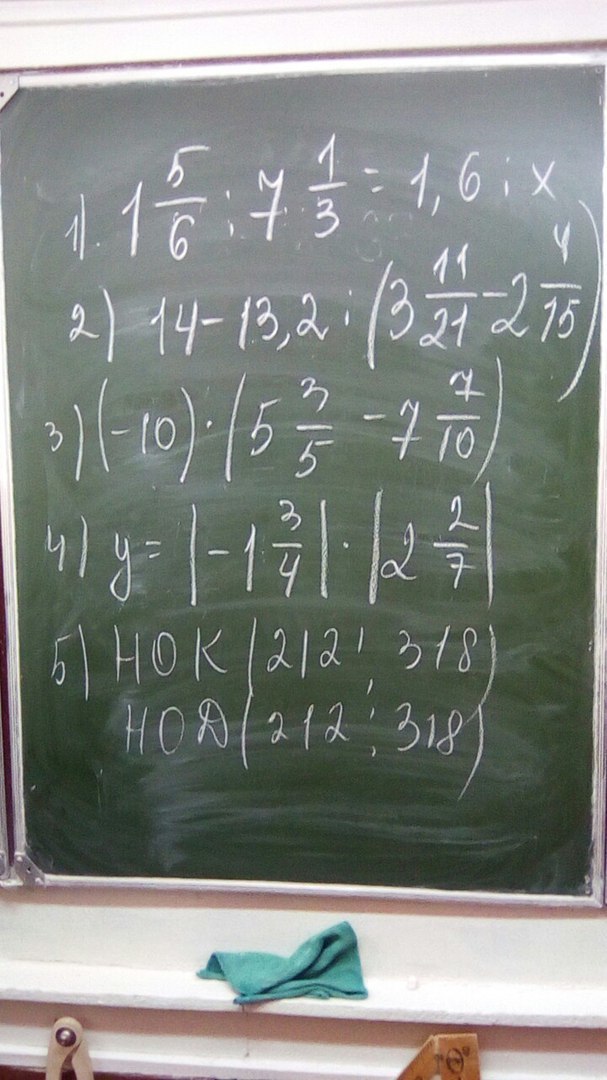 1). 1 5/6 : 7 1/3 = 1,6 : x
2) 14 - 13,2 : (3 11/21 - 2 4/15)
3) (-10) · (5 3/5 - 7 7/10)
4) y = |-1 3/4| · |2 2/7|
5) НОК (212 ; 318)
НОД (212 ; 318)